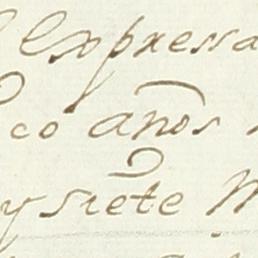 expressa
co años
ysiete